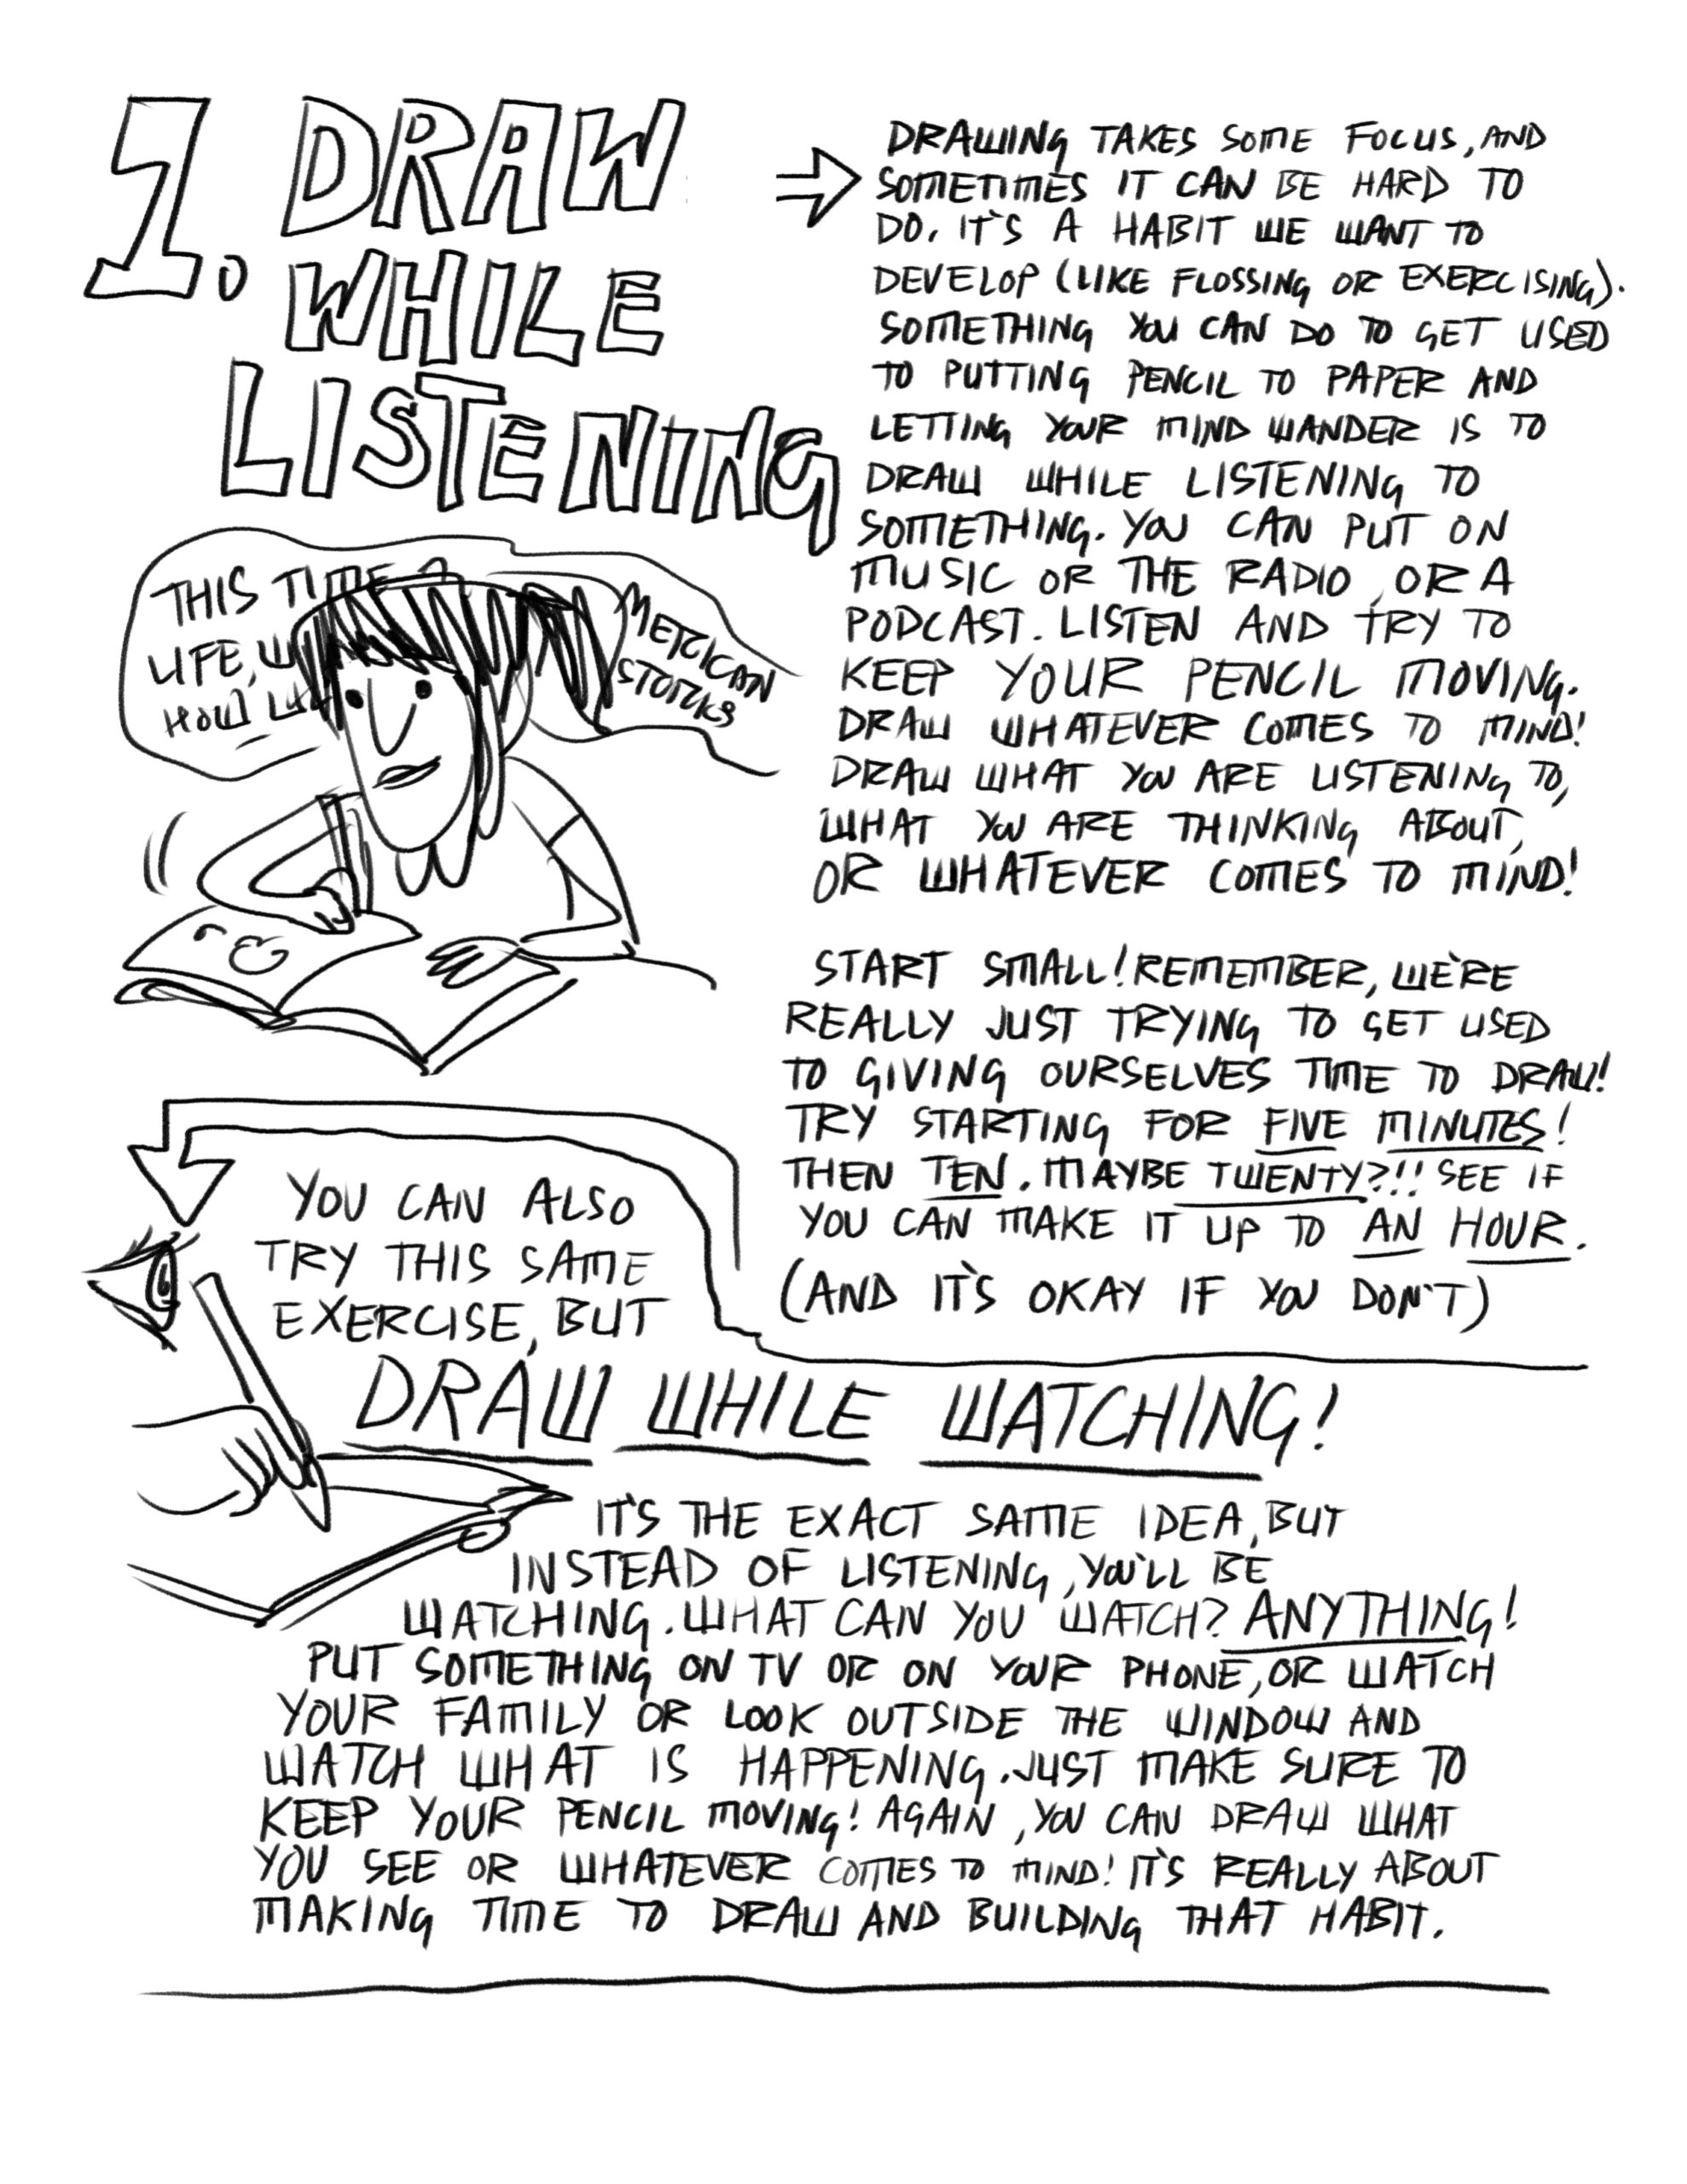 1. DRAW
WHILE
LISTENING
DRAWING TAKES SOME FOCUS, AND
SOMETIMES IT CAN BE HARD TO
DO. IT'S A HABIT WE WANT TO
DEVELOP (LIKE FLOSSING OR EXERCISING).
SOMETHING YOU CAN DO TO GET USED
TO PUTTING PENCIL TO PAPER AND
LETTING YOUR MIND WANDER IS TO
DRAW WHILE LISTENING TO
SOMETHING. YOU CAN PUT ON
MUSIC OR THE RADIO, OR A
PODCAST. LISTEN AND TRY TO
KEEP YOUR PENCIL MOVING.
DRAW WHATEVER COMES TO MIND!
DRAW WHAT YOU ARE LISTENING TO,
WHAT YOU ARE THINKING ABOUT,
OR WHATEVER COMES TO MIND!
THIS TIME
LIFE,
HOW
MERICAN
START SMALL! REMEMBER, WE'RE
REALLY JUST TRYING TO GET USED
TO GIVING OURSELVES TIME TO DRAW!
TRY STARTING FOR FIVE MINUTES!
THEN TEN. MAYBE TWENTY?!! SEE IF
YOU CAN MAKE IT UP TO AN HOUR.
(AND IT'S OKAY IF YOU DON'T)
YOU CAN ALSO
TRY THIS SAME
EXERCISE, BUT
DRAW WHILE WATCHING!
IT'S THE EXACT SAME IDEA, BUT
INSTEAD OF LISTENING, YOU'LL BE
WATCHING. WHAT CAN YOU WATCH? ANYTHING!
PUT SOMETHING ON TV OR ON YOUR PHONE, OR WATCH
YOUR FAMILY OR LOOK OUTSIDE THE WINDOW AND
WATCH WHAT IS HAPPENING. JUST MAKE SURE TO
KEEP YOUR PENCIL MOVING! AGAIN, YOU CAN DRAW WHAT
YOU SEE OR WHATEVER COMES TO MIND! IT'S REALLY ABOUT
MAKING TIME TO DRAW AND BUILDING THAT HABIT.